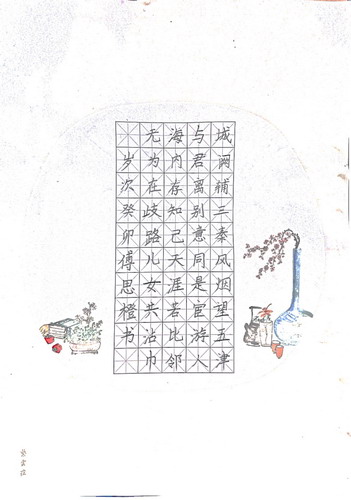 城阙辅三秦风烟望五津
与君离别意同是宦游人
海内存知己天涯若比邻
无为在歧路儿女共沾巾
岁次癸卯傅思橙书